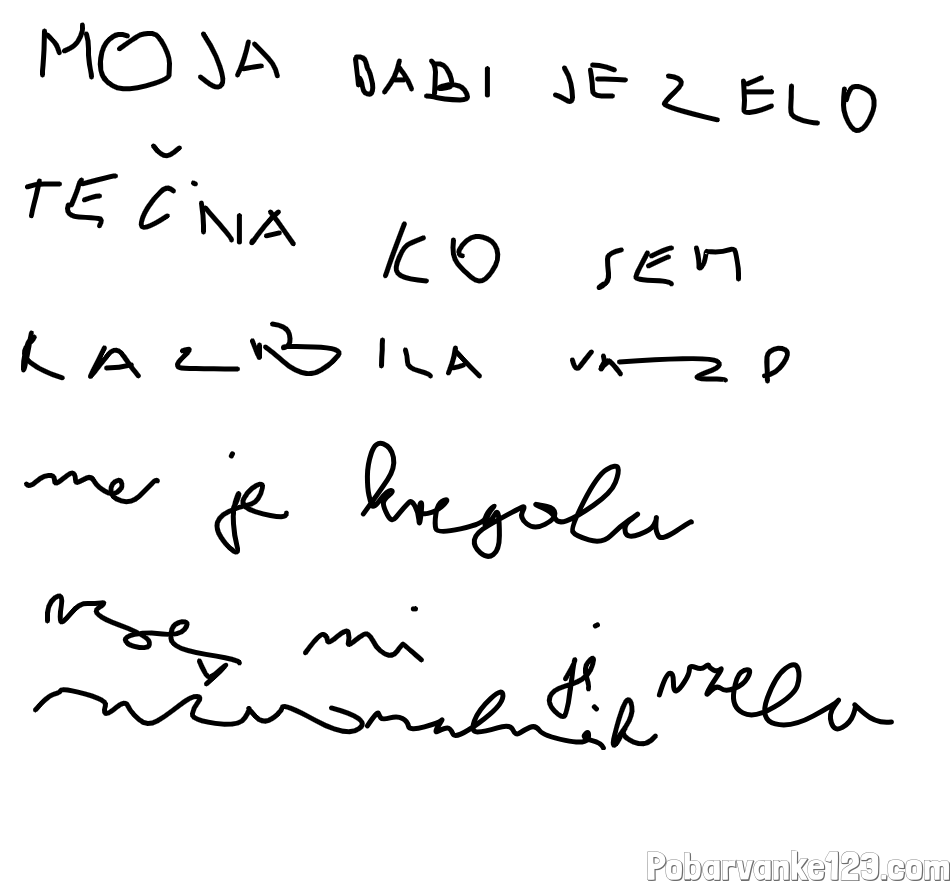 MOJA BABI JE ZELO
TEČNA KO SEM
RAZBILA
me je kregala
vse mi je vzela
računalnik
Pobarvanke123.com